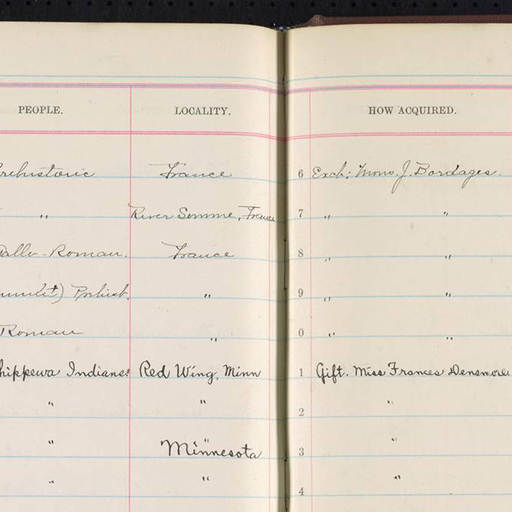 PEOPLE. LOCALITY. HOW ACQUIRED.
Prehistoric France 6 Exch: Mons. J. Bordages.
" River Somme, France 7 " "
Gallo-Roman. France 8 " "
) Prehist. " 9 " "
Roman " 0 " "
hippewa Indians Red Wing, Minn 1 Gift. Miss Frances Densmore
" " 2 "
" Minnesota 3 "
" " 4 "